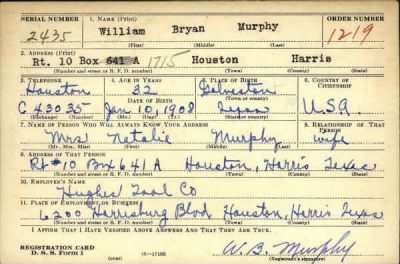 SERIAL NUMBER 1. NAME (Print) ORDER NUMBER
2435 William Bryan Murphy 1219
(First) (Middle) (Last)
2. ADDRESS (Print)
Rt. 10 Box 641 A 1715 Houston Harris
(Number and street or R. F. D. number) (Town) (County) (State)
3. TELEPHONE 4. AGE IN YEARS 5. PLACE OF BIRTH 6. COUNTRY OF CITIZENSHIP
Houston 32 Galveston
DATE OF BIRTH (Town or county)
C 43035 Jan 10, 1908 Texas U.S.A.
(Exchange) (Number) (Mo.) (Day) (Yr.) (State or country)
7. NAME OF PERSON WHO WILL ALWAYS KNOW YOUR ADDRESS 8. RELATIONSHIP OF THAT PERSON
Mrs Natalie Murphy wife
(Mr., Mrs., Miss) (First) (Middle) (Last)
9. ADDRESS OF THAT PERSON
Rt #10 Box 641 A Houston, Harris Texas
(Number and street or R. F. D. number) (Town) (County) (State)
10. EMPLOYER'S NAME
Hughes Tool Co
11. PLACE OF EMPLOYMENT OR BUSINESS
6200 Harrisburg Blvd Houston, Harris Texas
(Number and street or R. F. D. number) (Town) (County) (State)
I AFFIRM THAT I HAVE VERIFIED ABOVE ANSWERS AND THAT THEY ARE TRUE.
REGISTRATION CARD
D. S. S. Form 1 W. B. Murphy
(Registrant's signature)